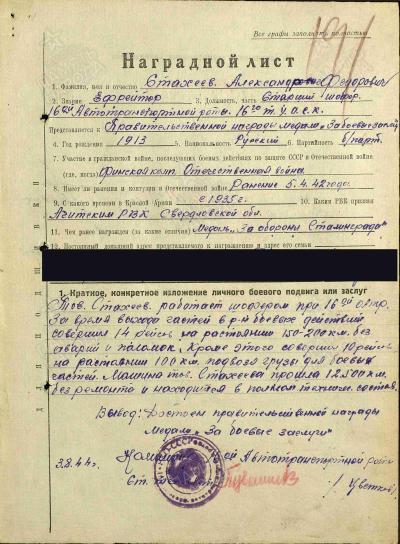 Все графы заполнять полностью
Наградной лист
1. Фамилия, имя и отчество Стахеев Александр Федорович
2. Звание Ефрейтор 3. Должность, часть Старший шофер
16ой Автотранспортной роты 16го т.у.а.с.к.
Представляется к Правительственной награды медаль "За боевые заслуги"
4. Год рождения 1913 5. Национальность Русский 6. Партийность б/парт.
7. Участие в гражданской войне, последующих боевых действиях по защите СССР и Отечественной войне
(где, когда) Финская комп. Отечественная война
8. Имеет ли ранения и контузии в Отечественной войне Ранение 5.4.42 года
9. С какого времени в Красной Армии с 1935 г. 10. Каким РВК призван
Ачитским РВК Свердловской обл.
11. Чем ранее награжден (за какие отличия) Медаль "За оборону Сталинграда"
12. Постоянный домашний адрес представляемого к награждению и адрес его семьи
1. Краткое, конкретное изложение личного боевого подвига или заслуг
Тов. Стахеев работает шофером при 16ой
За время выхода частей в р-н боевых действий
совершил 14 рейсов на растоянии 150-200 км. без
аварий и паломок, Кроме этого совершил 10 рейсов
на растоянии 100 км. подвоза груза для боевых
частей. Машина тов. Стахеева прошла 12500 км.
без ремонта и находится в полном технич. состоян.
Вывод: Достоен правительственной награды
Медаль "За боевые заслуги"
3.8.44 г. Командир 16ой Автотранспортной роты
Ст. /Цветков/